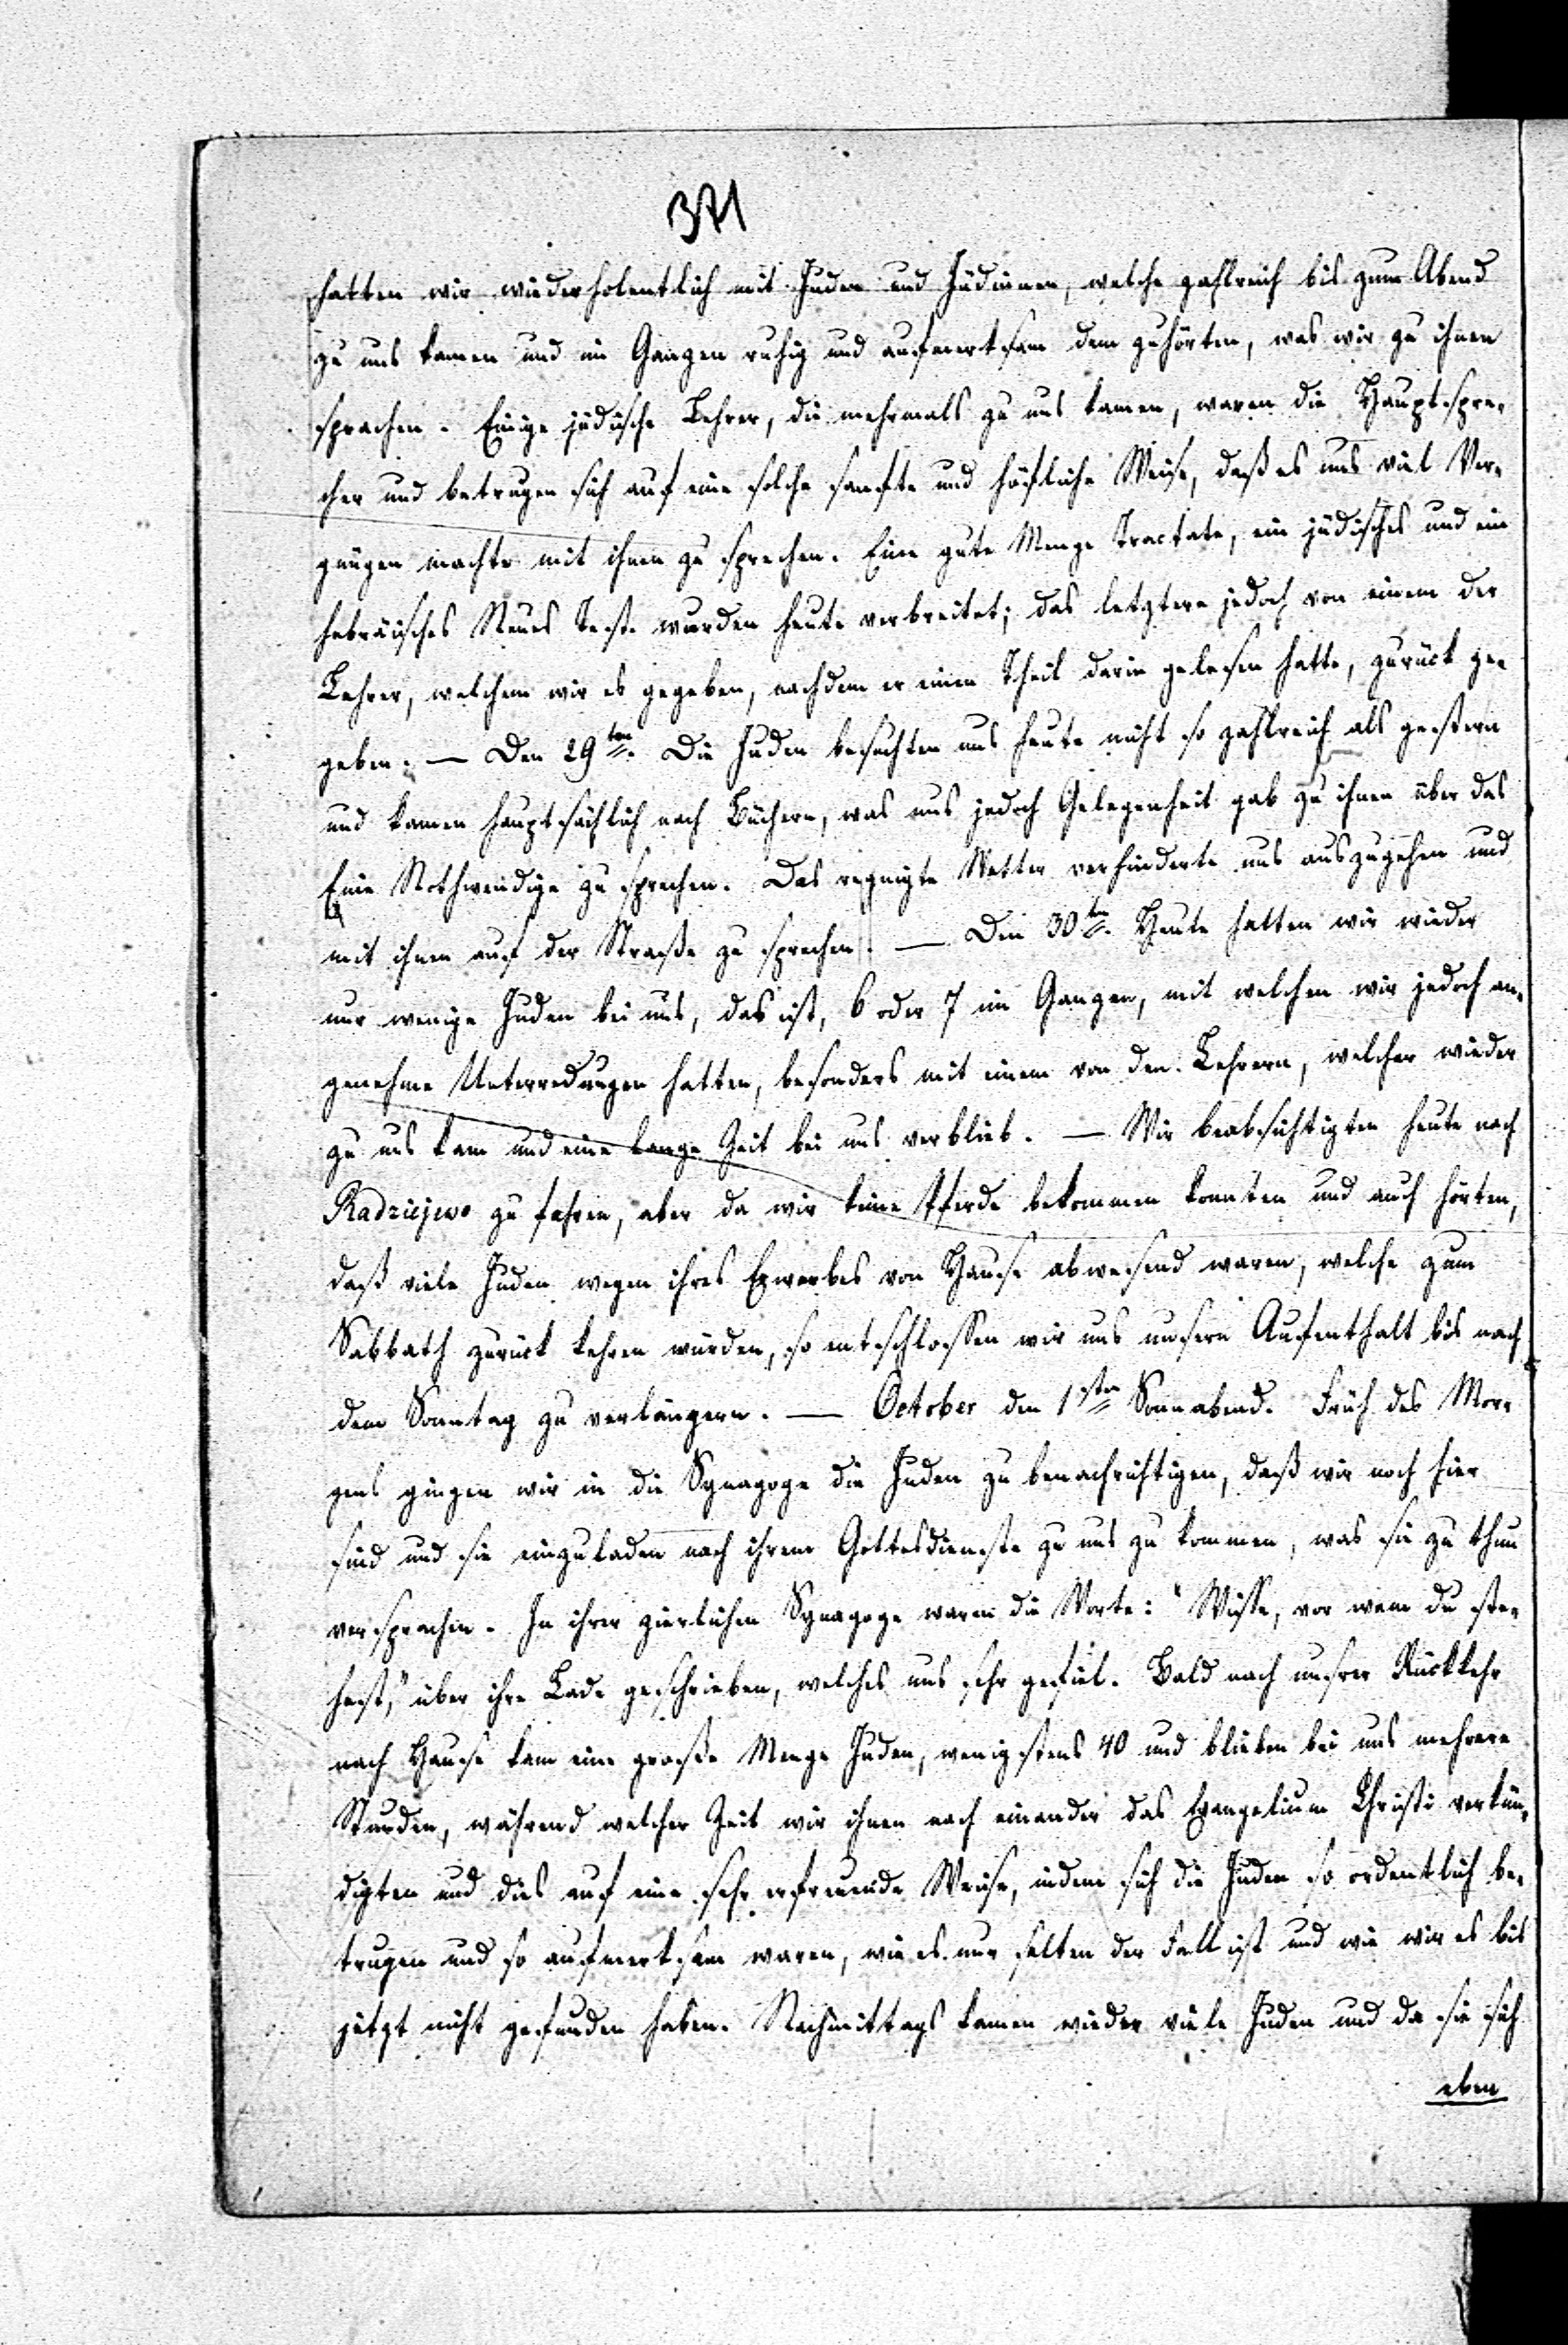 371
hatten wir wiederholentlich mit Juden und Jüdinnen, welche zahlreich bis zum Abend
zu uns kamen und im Ganzen ruhig und aufmerksam dem zuhörten, was wir zu ihnen
sprachen. Einige jüdische Lehrer, die mehrmals zu uns kamen, waren die Hauptspre-
cher und betrugen sich auf eine solche sanfte und höfliche Weise, daß es uns viel Ver-
gnügen machte mit ihnen zu sprechen. Eine gute Menge Tractate, ein jüdisches und ein
hebräisches Neues Test. wurden heute verbreitet; das letztere jedoch von einem der
Lehrer, welchem wir es gegeben, nachdem er einen Theil darin gelesen hatte, zurück ge-
geben. — Den 29ten. Die Juden besuchten uns heute nicht so zahlreich als gestern
und kamen hauptsächlich nach Büchern, was uns jedoch Gelegenheit gab zu ihnen über das
Eine Nothwendige zu sprechen. Das regnigte Wetter verhinderte uns auszugehen und
mit ihnen auf der Straße zu sprechen. — Den 30ten. Heute hatten wir wieder
nur wenige Juden bei uns, das ist, 6 oder 7 im Ganzen, mit welchen wir jedoch an-
genehme Unterredungen hatten, besonders mit einem von den Lehrern, welcher wieder
zu uns kam und eine lange Zeit bei uns verblieb. — Wir beabsichtigten heute nach
Radziejewo zu fahren, aber da wir keine Pferde bekommen konnten und auch hörten,
daß viele Juden wegen ihres Erwerbes von Hause abwesend waren, welche zum
Sabbath zurück kehren würden, so entschlossen wir uns unsern Aufenthalt bis nach
dem Sonntag zu verlängern. — October den 1sten Sonnabend. Früh des Mor-
gens gingen wir in die Synagoge die Juden zu benachrichtigen, daß wir noch hier
sind und sie einzuladen nach ihrem Gottesdienste zu uns zu kommen, was sie zu thun
versprachen. In ihrer zierlichen Synagoge waren die Worte: "Wisse, vor wem du ste-
hest," über ihre Lade geschrieben, welches uns sehr gefiel. Bald nach unsrer Rückkehr
nach Hause kam eine große Menge Juden, wenigstens 40 und blieben bei uns mehrere
Stunden, während welcher Zeit wir ihnen nach einander das Evangelium Christi verkün-
digten und dies auf eine sehr erfreuende Weise, indem sich die Juden so ordentlich be-
trugen und so aufmerksam waren, wie es nur selten der Fall ist und wie wir es bis
jetzt nicht gefunden haben. Nachmittags kamen wieder viele Juden und da sie sich
eben